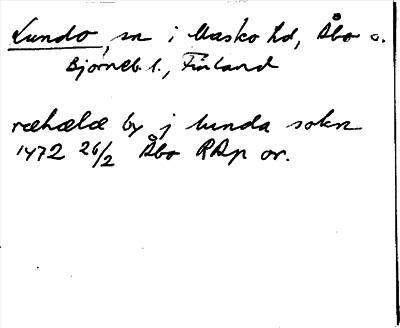 Lundo, sn i Masko hd, Åbo o.
Björneb l., Finland
ræhælæ by j lunda sokn
1472 26/2 Åbo RAp or.